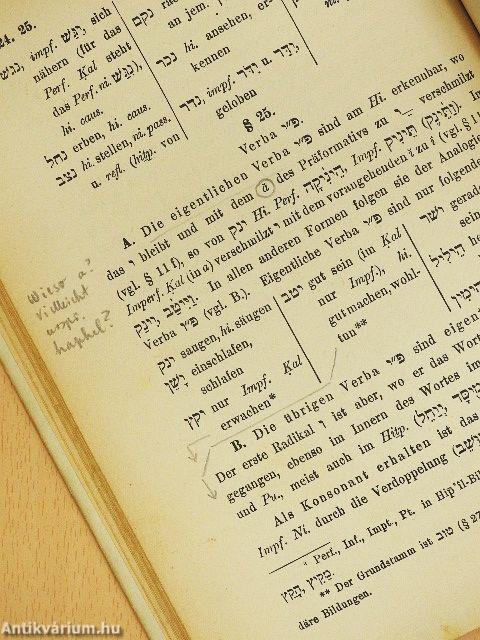 24. 25.
נגשׁ, impf. יִגַּשׁ sich
nähern (für das
Perf. Kal steht
das Perf. ni. נִגַּשׁ),
hi. caus.
נחל erben, hi. caus.
נצב hi. stellen, ni. pass.
u. refl. (hitp. von
נקם
an jem.
נכר hi. ansehen, er-
kennen
נדר, impf. יִדַּר u. יִדֹּר,
geloben
§ 25.
Verba פ״י.
A. Die eigentlichen Verba פ״י sind am Hi. erkennbar, wo
das י bleibt und mit dem a des Präformativs zu verschmilzt
(vgl. § 11 f), so von ינק Hi. Perf. הֵינִיקָה, Impf. תֵּינִיק (תֵּינִק). Im
Imperf. Kal (in a) verschmilzt י mit dem vorangehenden i zu ī (vgl. § 11
וַיִּיטַב, יִינַק. In allen anderen Formen folgen sie der Analogie
Verba פ״ו (vgl. B.). Eigentliche Verba פ״י sind nur folgende
ינק saugen, hi. säugen
ישׁן einschlafen,
schlafen
יקץ nur Impf. Kal
erwachen*
יטב gut sein (im Kal
nur Impf.), hi.
gutmachen, wohl-
tun**
ישׁר gerade
sein
הֵילִיל
הֵימִין
Wieso a?
Vielleicht
urspr.
haphel?
B. Die übrigen Verba פ״י sind eigent
Der erste Radikal ו ist aber, wo er das Wort
gegangen, ebenso im Innern des Wortes im
und Pu., meist auch im Hitp.
Als Konsonant erhalten ist das
Impf. Ni. durch die Verdoppelung
* Perf., Inf., Impt., Pt. in Hip'il-Bil
מֵקִיץ, הָקֵץ.
** Der Grundstamm ist טוב (§ 27
däre Bildungen.
Antikvárium.hu